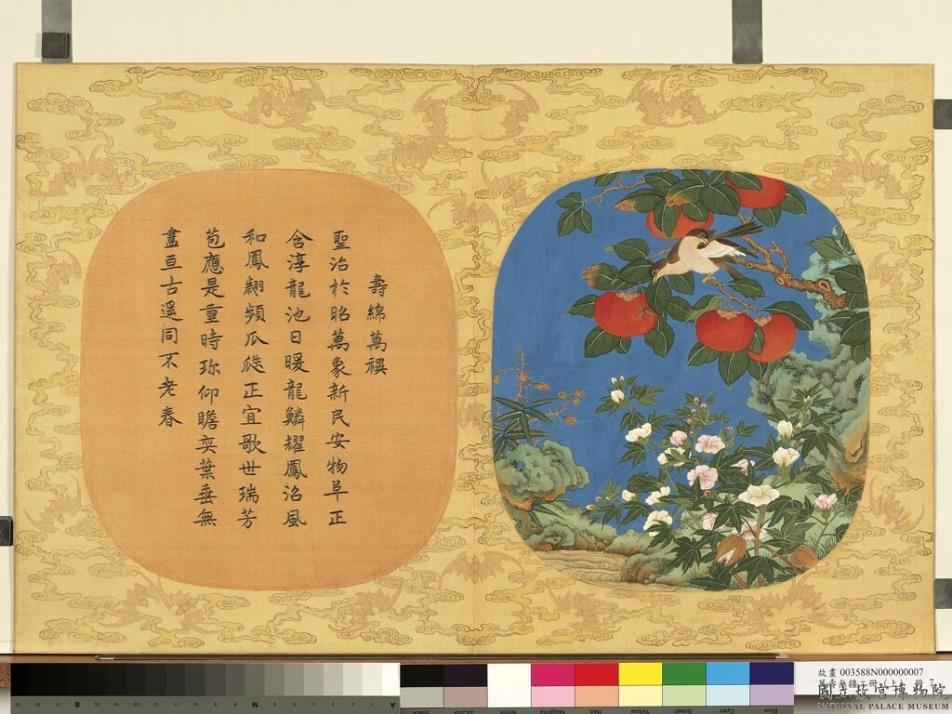 壽綿萬禩
聖治於昭萬象新民安物阜正
含淳龍池日暖龍鱗耀鳳沼風
和鳳翽頻瓜瓞正宜歌世瑞芳
苞應是重時珎仰瞻奕葉垂無
盡亘古遥同不老春
故畫 003588N000000007
國立故宮博物院
NATIONAL PALACE MUSEUM
Black
White
Magenta
Red
Yellow
Green
Cyan
Blue
B
M
A